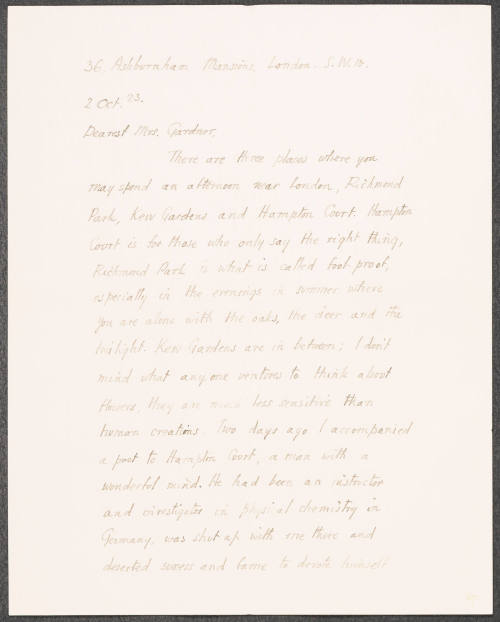 36. Ashburnham Mansions, London. S.W.10.
2 Oct. 23.
Dearest Mrs. Gardner,
There are three places where you
may spend an afternoon near London, Richmond
Park, Kew Gardens and Hampton Court. Hampton
Court is for those who only say the right thing,
Richmond Park is what is called foot-proof,
especially in the evenings in summer where
you are alone with the oaks, the deer and the
twilight. Kew Gardens are in between; I don't
mind what anyone ventures to think about
flowers, they are much less sensitive than
human creations. Two days ago I accompanied
a poet to Hampton Court, a man with a
wonderful mind. He had been an instructor
and investigator in physical chemistry in
Germany, was shut up with me there and
deserted success and fame to devote himself